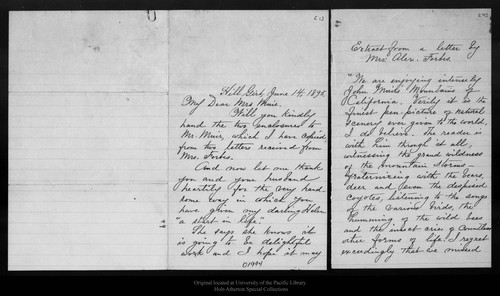 Hill Girt, June 14, 1895.
My Dear Mrs Muir.
Will you kindly
hand the two enclosures to
Mr Muir, which I have copied
from two letters received from
Mrs. Forbes.
And now let me thank
you and your husband
heartily for the very hand-
some way in which you
have given my darling Helen
"a start in life."
She says she knows it
is going to be delightful
work and I hope it may
01994
Extract from a letter by
Mrs. Alex. Forbes.
"We are enjoying intensely
John Muir's Mountains of
California. Verily it is the
finest pen picture of natural
scenery ever given to the world,
I do believe. The reader is
with him through it all,
witnessing the grand wildness
of the mountain storms -
fraternizing with the bears,
deer and even the despised
coyotes, listening to the songs
of the various birds, the
humming of the wild bees
and the insect cries of countless
other forms of life. I regret
exceedingly that we missed
Original located at University of the Pacific Library
Holt-Atherton Special Collections